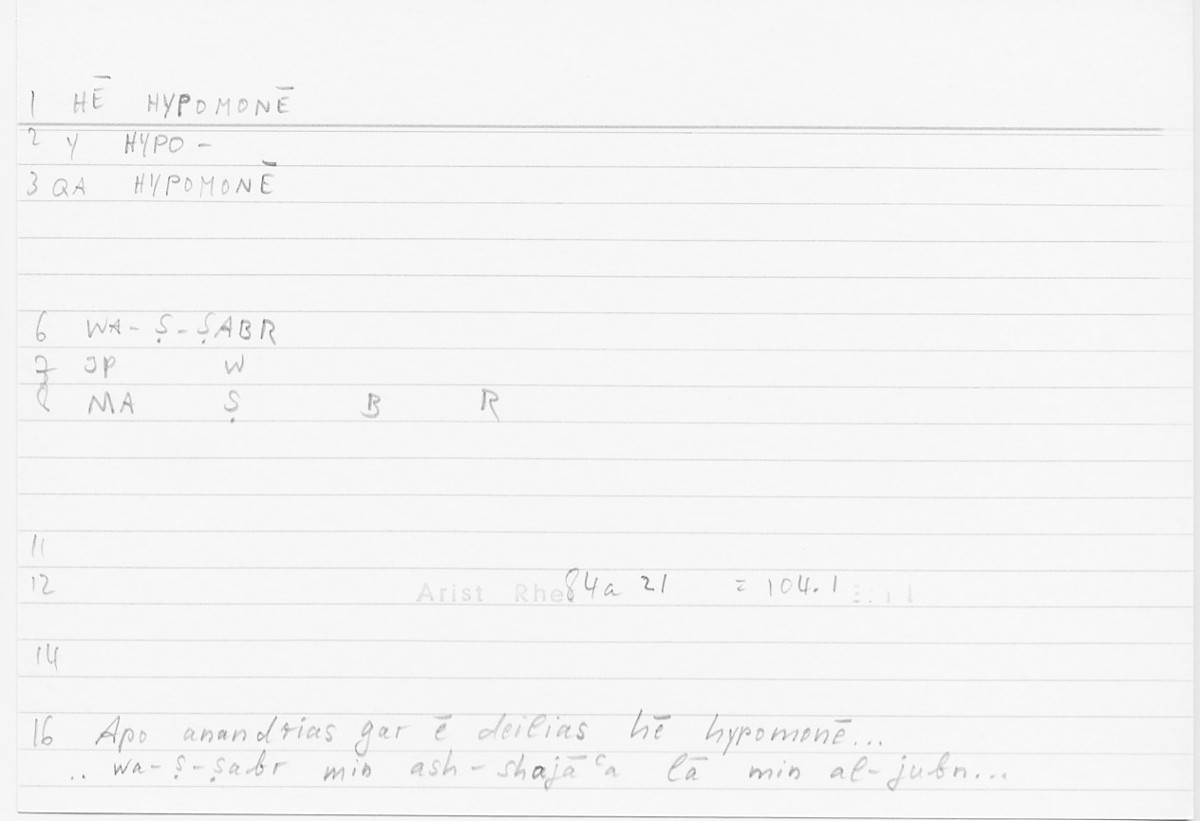 1 HĒ HYPOMONĒ
2 Y HYPO -
3 QA HYPOMONĒ
6 WA-Ṣ-ṢABR
7 JP W
8 MA Ṣ B R
11
12 Arist Rhe 84a 21 = 104.1
14
16 Apo anandrias gar ē deilias hē hypomonē...
.. wa-ṣ-ṣabr min ash-shajāʿa lā min al-jubn...